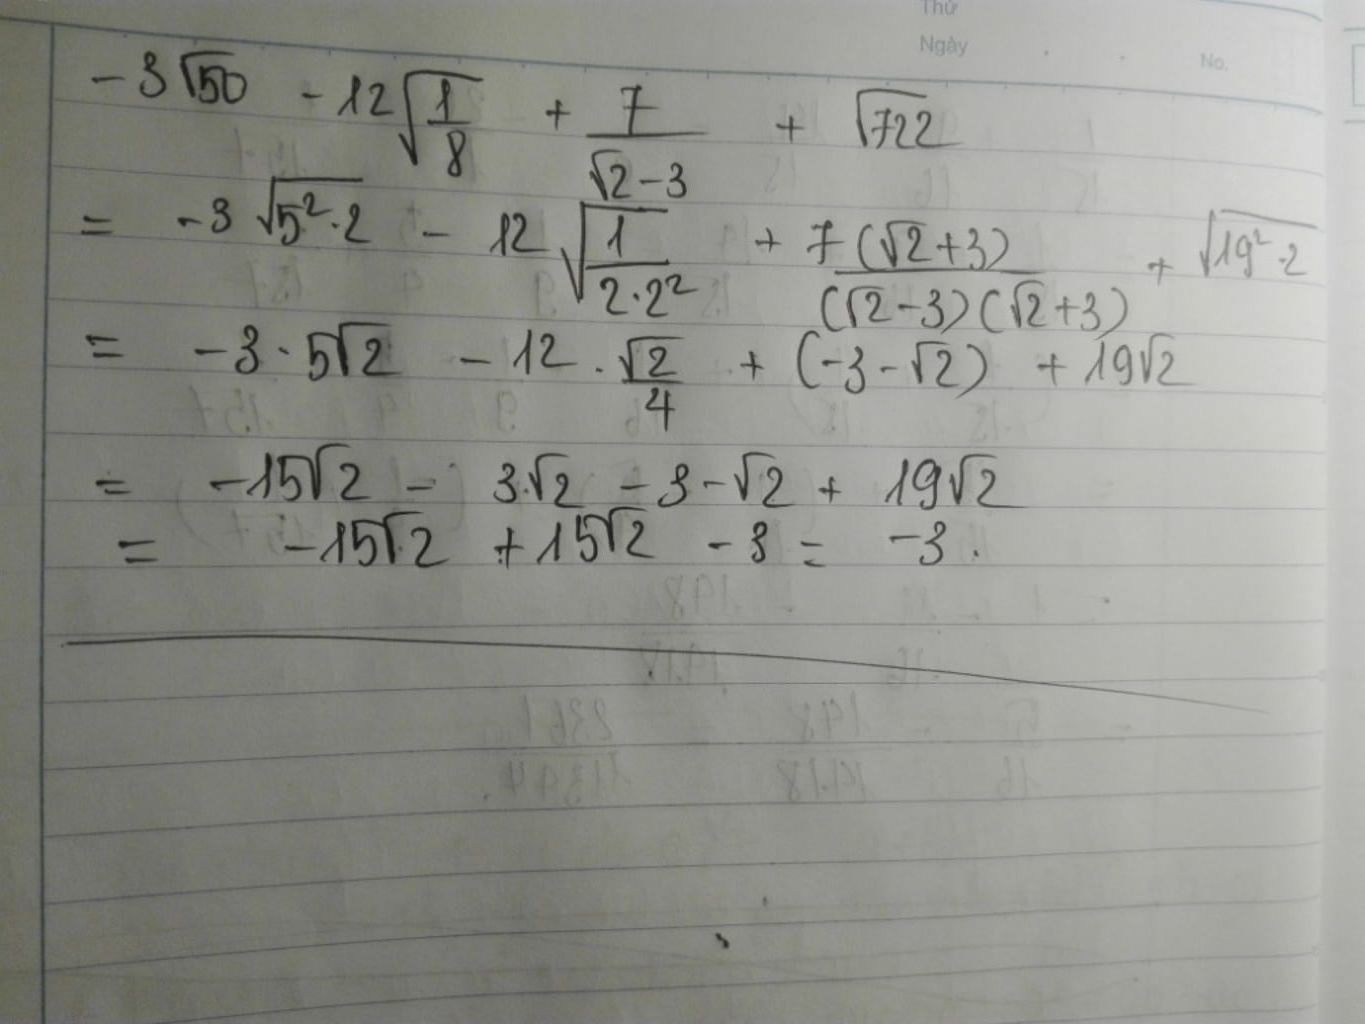 Thứ
Ngày
No.
-3√50 - 12√(1/8) + 7/(√2-3) + √722
= -3√(5²·2) - 12√(1/(2·2²)) + 7(√2+3)/((√2-3)(√2+3)) + √(19²·2)
= -3·5√2 - 12·√2/4 + (-3-√2) + 19√2
= -15√2 - 3√2 - 3 - √2 + 19√2
= -15√2 + 15√2 - 3 = -3.